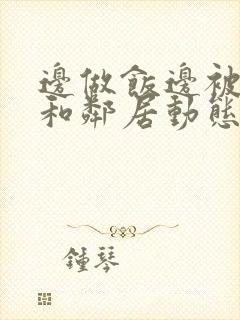 邊做飯邊被
和鄰居動態
鍾琴